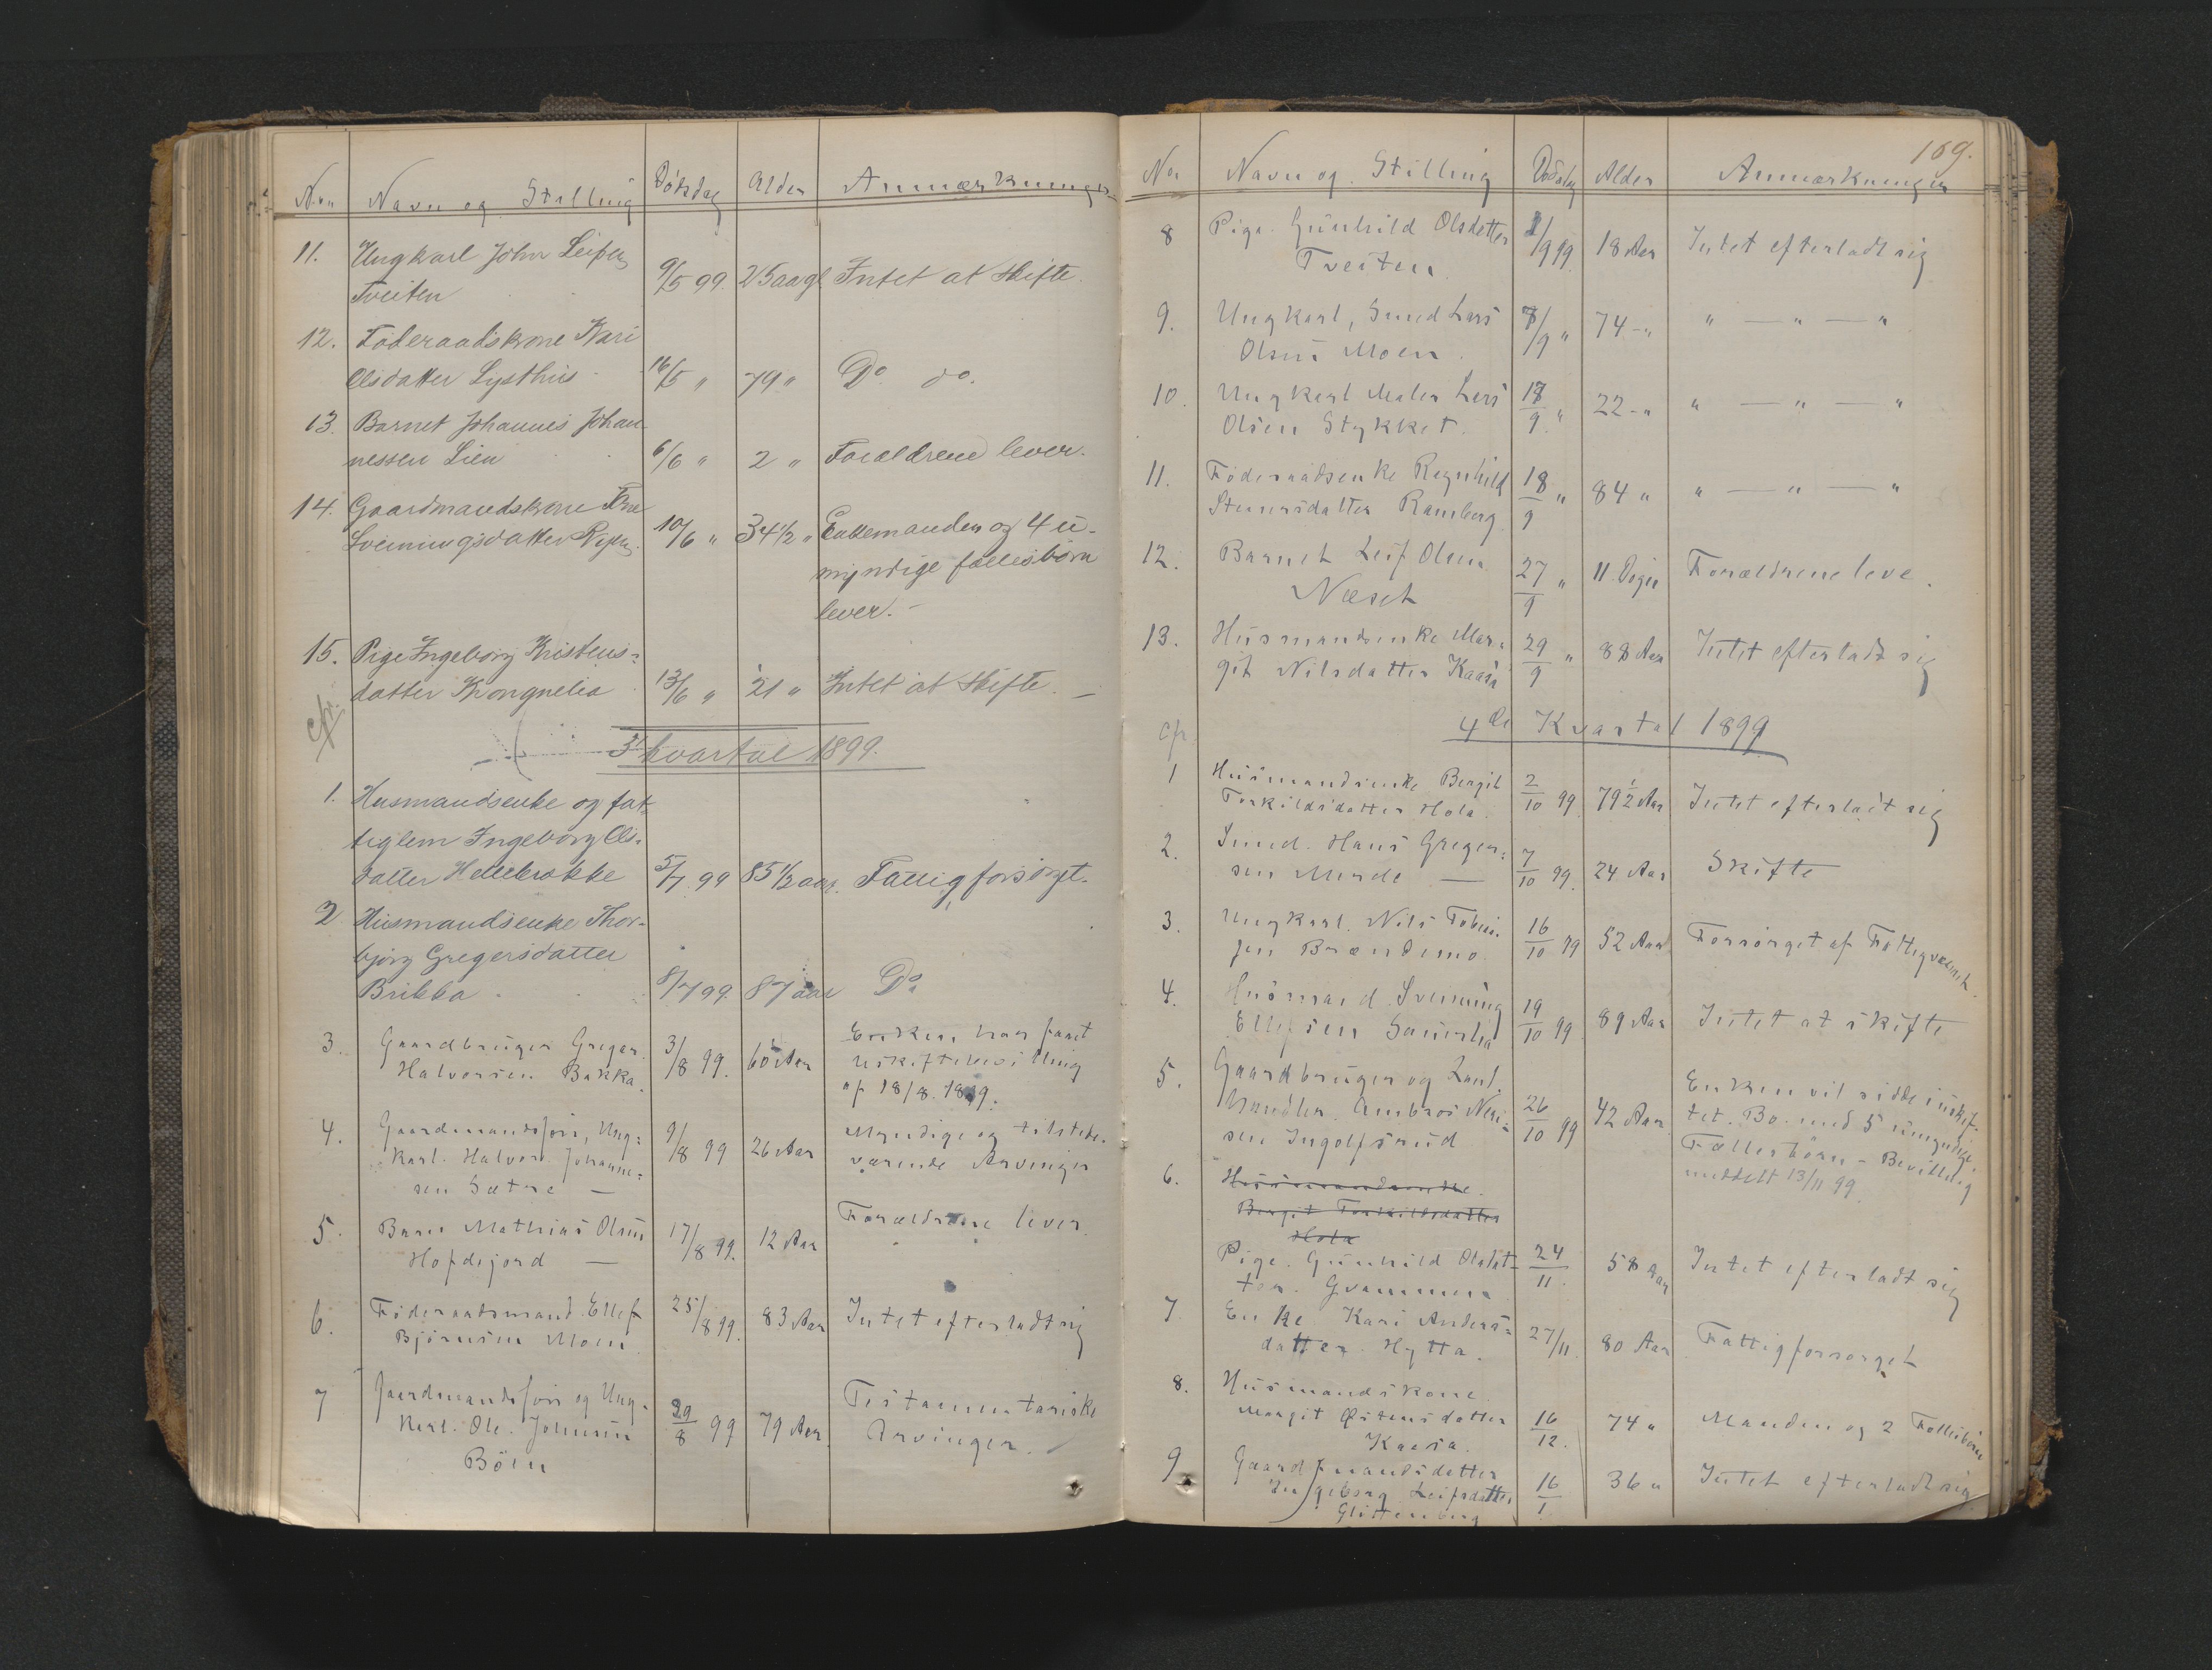 No Navn og Stilling Dödsdag Alder Anmærkninger
11. Ungkarl John Leifsen
Tveiten 9/5 99. 25 aar Intet at skifte.
12. Föderaadskone Kari
Olsdatter Lysthus 16/5 " 79 " Do do.
13. Barnet Johannes Johan-
nessen Lien 6/6 " 2 " Forældrene lever.
14. Gaardmandskone
Sveinungsdatter 10/6 " 34 1/2 " Enkemanden og 4 u-
myndige fællesbörn
lever. -
15. Pige Ingeborg Kristens-
datter Krongnelia 13/6 " 21 " Intet at skifte. -
3' kvartal 1899.
1. Husmandsenke og fat-
tiglem Ingeborg Ols-
datter Hellebrække 5/7. 99 85 1/2 aar. Fattigforsörget.
2 Husmandsenke Thor-
björg Gregersdatter
Brikka 8/7 99. 87 aar Do
3. Gaardbruger Greger
Halvorsen Bakka. 3/8 99. 60 Aar Enken har faaet
uskiftebevilling
af 18/8. 1899.
4. Gaardmandssön, Ung-
karl. Halvor Johanne-
sen Sætre — 9/8 99 26 Aar Myndige og tilstede-
værende Arvinger
5. Barn Mathias Olsen
Hofdejord — 17/8 99. 12 Aar Forældrene lever
6. Föderaadsmand Ellef
Björnsen Moen 25/8 99. 83 Aar Intet efterladt sig
7 Gaardmandssön og Ung-
karl. Ole. Johnsen
Böen 29/8 99 79 Aar Testamentariske
Arvinger.
169.
No Navn og Stilling Dödsdag Alder Anmærkninger
8 Pige. Gunhild Olsdatter
Tveiten 1/9 99. 18 Aar Intet efterladt sig
9. Ungkarl, Smed Lars
Olsen Moen. 7/9 " 74 - " " — " — "
10. Ungkarl Maler Lars
Olsen Stykket. 18/9. " 22 - " " — " — "
11. Föderaadsenke Ragnhild
Steinarsdatter Ramberg 18/9 " 84 " " — " — "
12. Barnet Leif Olsen
Næset 27/9 " 11 Doger Forældrene leve.
13. Husmandsenke Mar-
git Nilsdatter Kaasa 29/9 " 88 Aar Intet efterladt sig
cfr. 4de Kvartal 1899
1 Husmandsenke Bergit
Torkildsdatter Hola. 2/10 99. 79 1/2 Aar Intet efterladt sig
2. Smed. Hans Greger-
sen Murde — 7/10 99. 24 Aar Skifte
3. Ungkarl. Nils Tobias-
sen Brændemo 16/10 99 52 Aar Forsörget af Fattigvæsnet.
4. Husmand Sveinung
Ellefsen Sauerlia 19/10 99 89 Aar Intet at skifte
5. Gaardbruger og Land-
handler. Ambros Neri-
sen Ingolfsrud 26/10 99 42 Aar Enken vil sidde i uskif-
tet. Bo. med 5 umyndige.
Fællesbörn - Bevilling
meddelt 13/11 99.
6. Husmandsenke
Bergit Torkildsdatter
Hola
Pige. Gunhild Olsdat-
ter. Gvammen 24/11. 58 Aar Intet efterladt sig
7 Enke Kari Anders-
datter. Hytta. 27/11. 80 Aar Fattigforsorget
8. Husmandskone.
Margit Östensdatter
Kaasa. 16/12. 74 " Manden og 2 Fællesbörn
9 Gaardmandsdatter
Ingeborg Leifsdatter
Glittenberg 16/1 36 " Intet efterladt sig